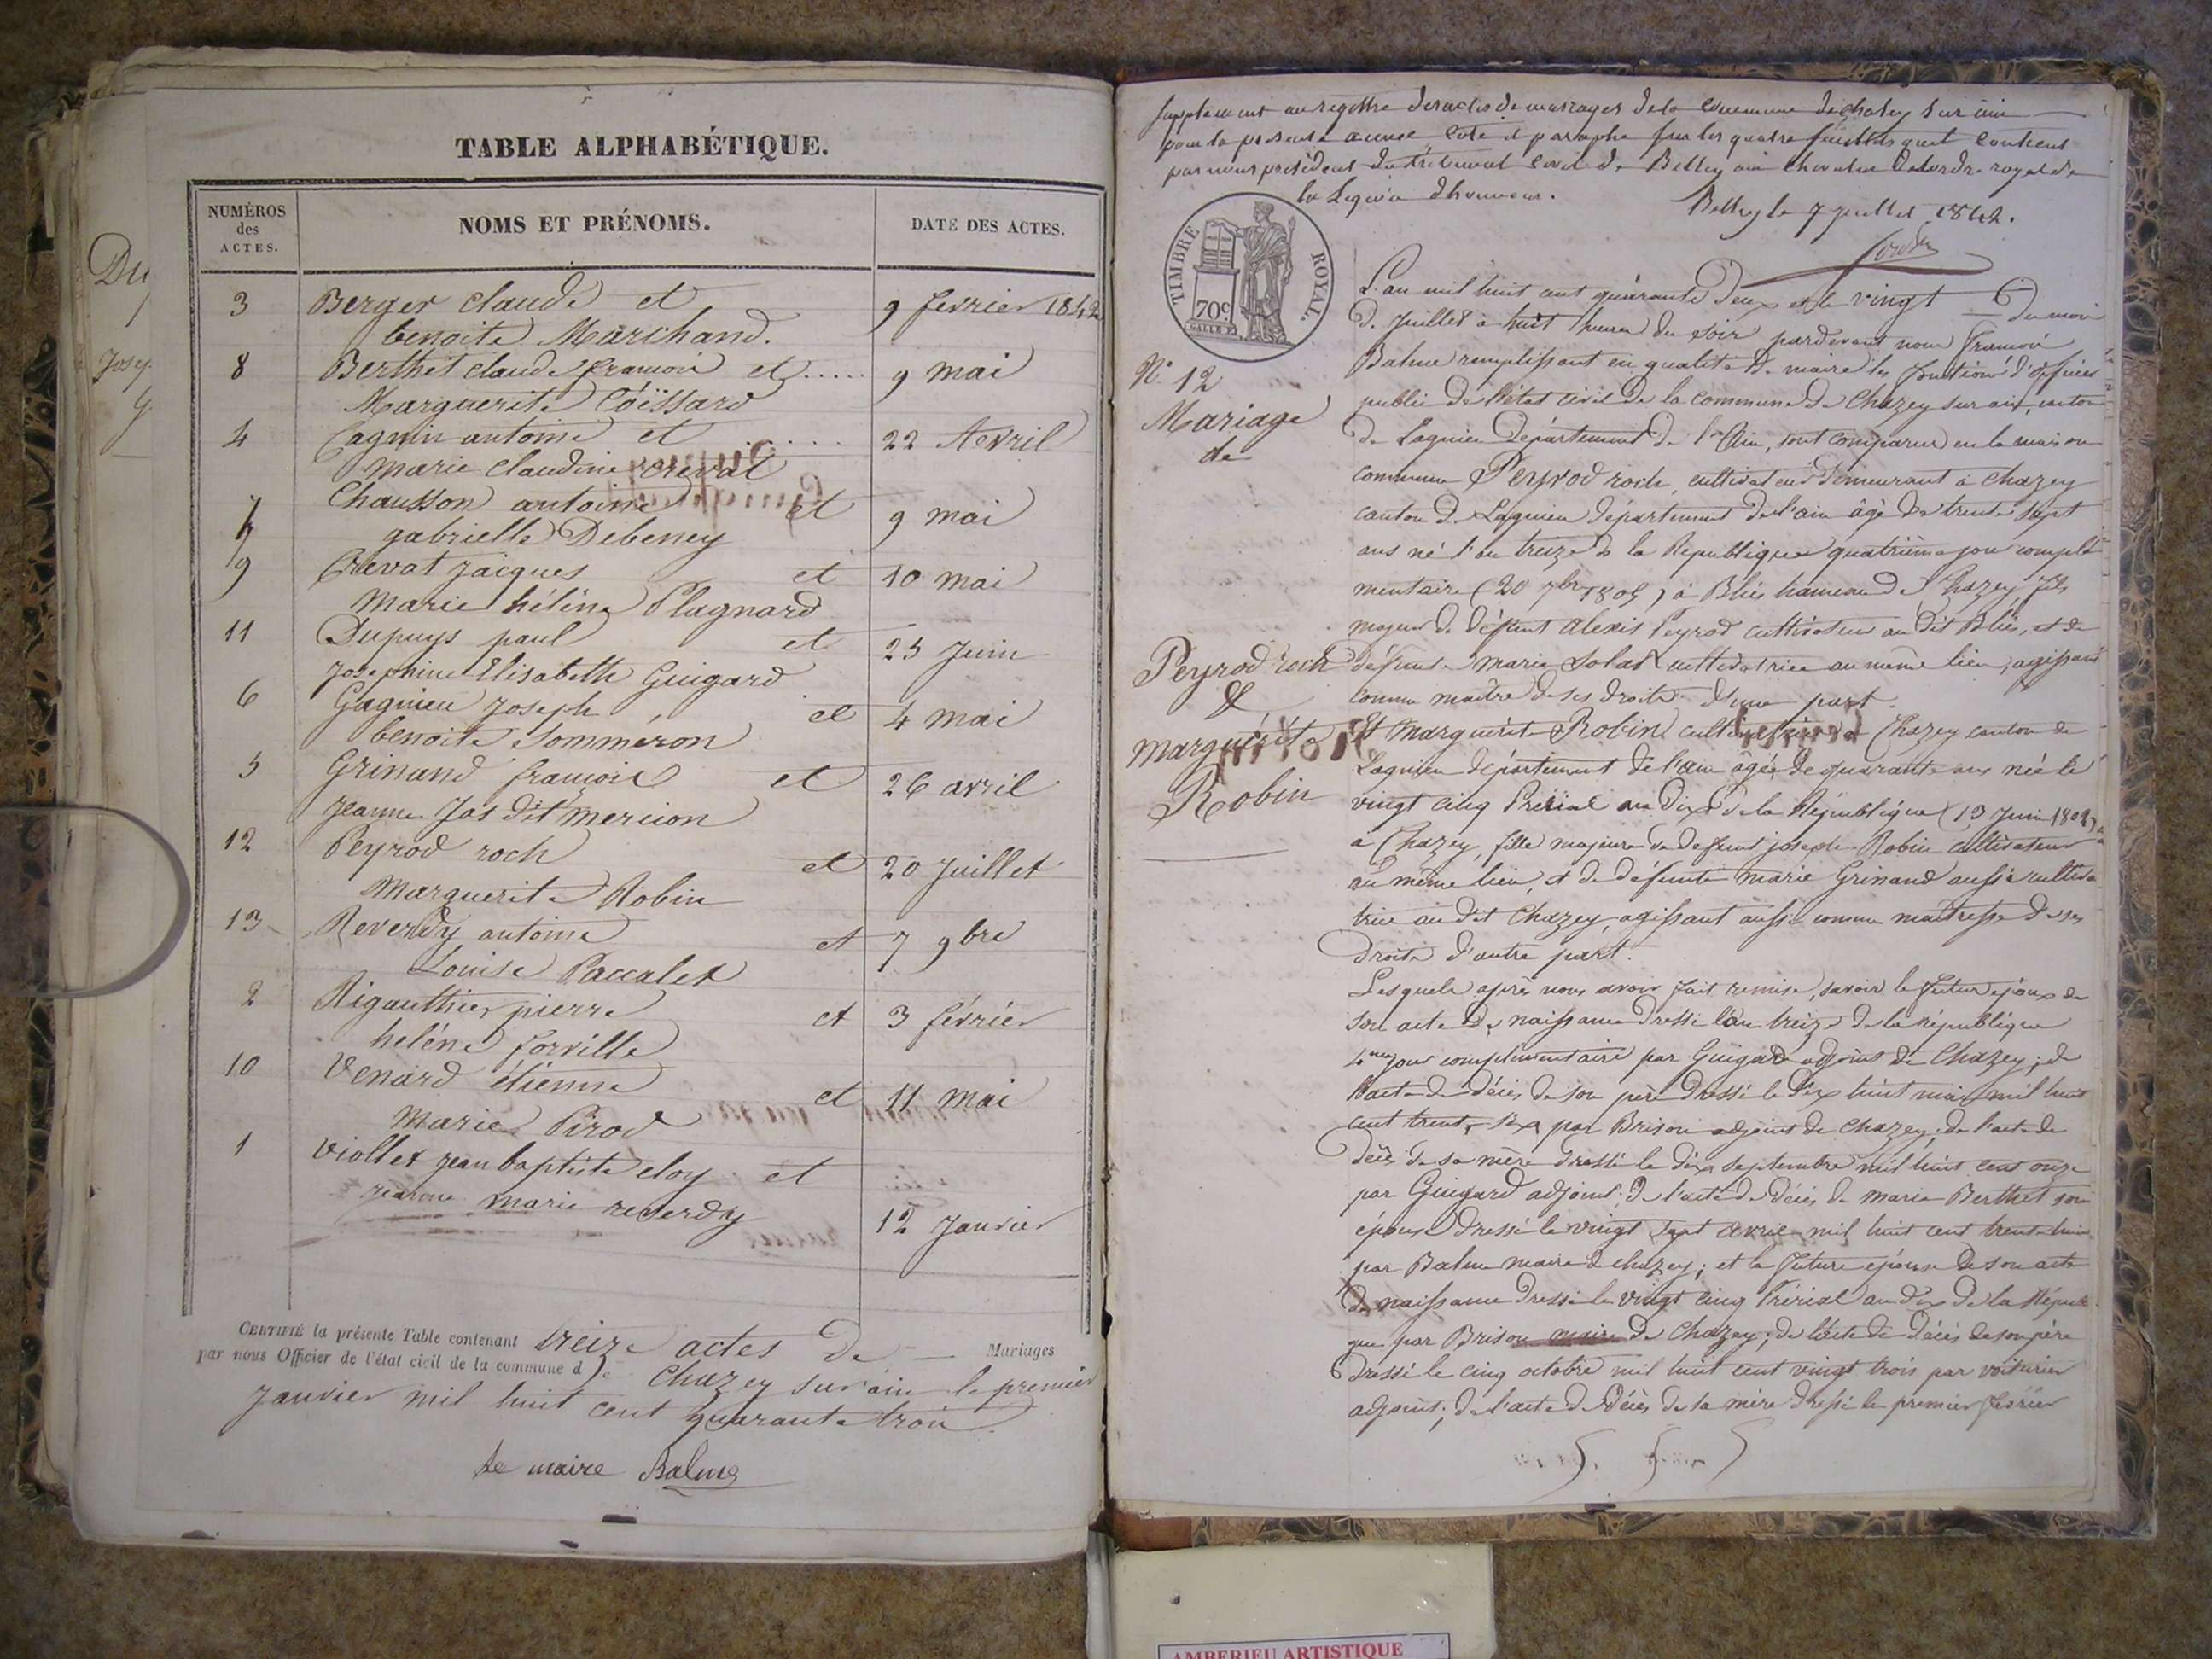 Du
1
Josep
TABLE ALPHABÉTIQUE.
NUMÉROS des ACTES.
NOMS ET PRÉNOMS.
DATE DES ACTES.
3 Berger claude et 9 fevrier 1842
benoite Marchand.
8 Berthet claude francois et ..... 9 mai
Marguerite Côissard
4 Cagnin antoine et ..... 22 Avril
marie claudine crevat
7 Chausson antoine et 9 mai
gabrielle Debeney
9 Crevat jacques et 10 mai
marie hélène Plagnard
11 Dupuys paul et 25 Juin
Josephine Elisabeth Guigard
6 Gagnieu Joseph et 4 mai
benoite Sommeron
5 Grinand francois et 26 avril
Jeanne Jas dit mercion
12 Peyrod roch et 20 Juillet
Marguerite Robin
13 Reverdy antoine et 7 9bre
Louise Paccalet
2 Rigauthier pierre et 3 février
helène forville
10 Venard étienne et 11 mai
Marie Pirod
1 Viollet jean baptiste eloy et
jeanne marie reverdy 12 Janvier
CERTIFIÉ la présente Table contenant treize actes de — Mariages
par nous Officier de l'état civil de la commune de Chazey sur ain le premier
Janvier mil huit cent quarante trois.
Le maire Balme
Supplement au registre des actes de mariages de la commune de chazey sur ain
pour la presente annee coté et paraphé sur les quatre feuillets quil contient
par nous president du tribunal civil de Belley ain chevalier de lordre royal de
la Legion dhonneur.
Belley le 7 juillet 1842.
TIMBRE ROYAL.
70c.
L'an mil huit cent quarante deux et le vingt du mois
de Juillet à huit heures du soir pardevant nous francois
Balme remplissant en qualité de maire les fonctions d'officier
public de l'état civil de la commune de Chazey sur ain, canton
de Lagnieu Département de l'Ain, sont comparus en la maison
commune Peyrod roch, cultivateur demeurant à chazey
canton de Lagnieu département de l'ain âgé de trente sept
ans né l'an treize de la République quatrième jour complé
mentaire (20 7bre 1805) à Bliés hameau de Chazey, fils
majeur de défunt alexis Peyrod cultivateur au dit Bliés, et de
défunte marie Solat cultivatrice au même lieu, agissant
comme maitre de ses droits d'une part.
Et Marguerite Robin cultivatrice à Chazey canton de
Lagnieu département de l'ain agée de quarante ans née le
vingt cinq Prérial an dix de la République (13 Juin 1802)
à Chazey, fille majeure de defunt joseph Robin cultivateur
au même lieu, et de défunte marie Grinand aussi cultiva
trice au dit Chazey, agissant aussi comme maitresse de ses
Droits d'autre part.
Lesquels après nous avoir fait remise, savoir le futur époux de
son acte de naissance dressé l'an treize de la république
4me jour complementaire par Guigard adjoint de Chazey; de
l'acte de décès de son père dressé le dix huit mai mil huit
cent trente six par Brison adjoint de chazey; de l'acte de
décès de sa mère dressé le dix septembre mil huit cent onze
par Guigard adjoint; de l'acte de décès de marie Berthet son
épouse dressé le vingt sept avril mil huit cent trente huit
par Balme maire de chazey; et la future épouse de son acte
de naissance dressé le vingt cinq Prérial an dix de la Républi
que par Brison maire de Chazey; de l'acte de décès de son père
dressé le cinq octobre mil huit cent vingt trois par voiturier
adjoint; de l'acte de décès de sa mère dressé le premier février
N° 12
Mariage
de
Peyrod roch
&
marguérite
Robin
AMBERIEU ARTISTIQUE